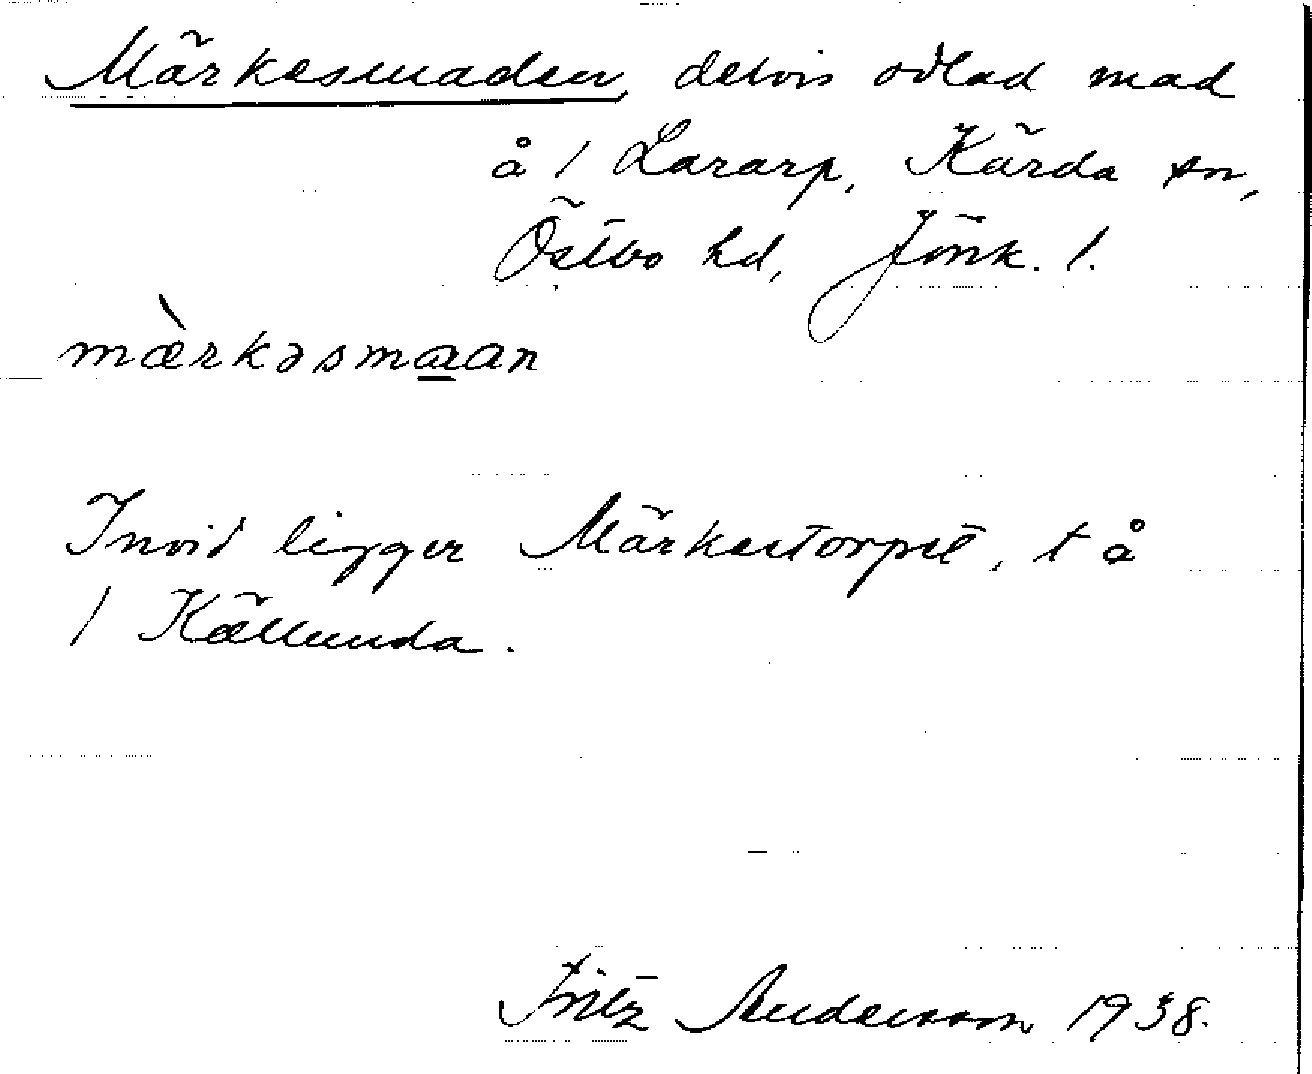 Märkesmaden, delvis odlad mad
å 1 Lararp, Kärda sn,
Östbo hd, Jönk. l.
mærkəsmaan
Invid ligger Märkestorpet, t å
1 Källunda.
Fritz Andersson 1938.